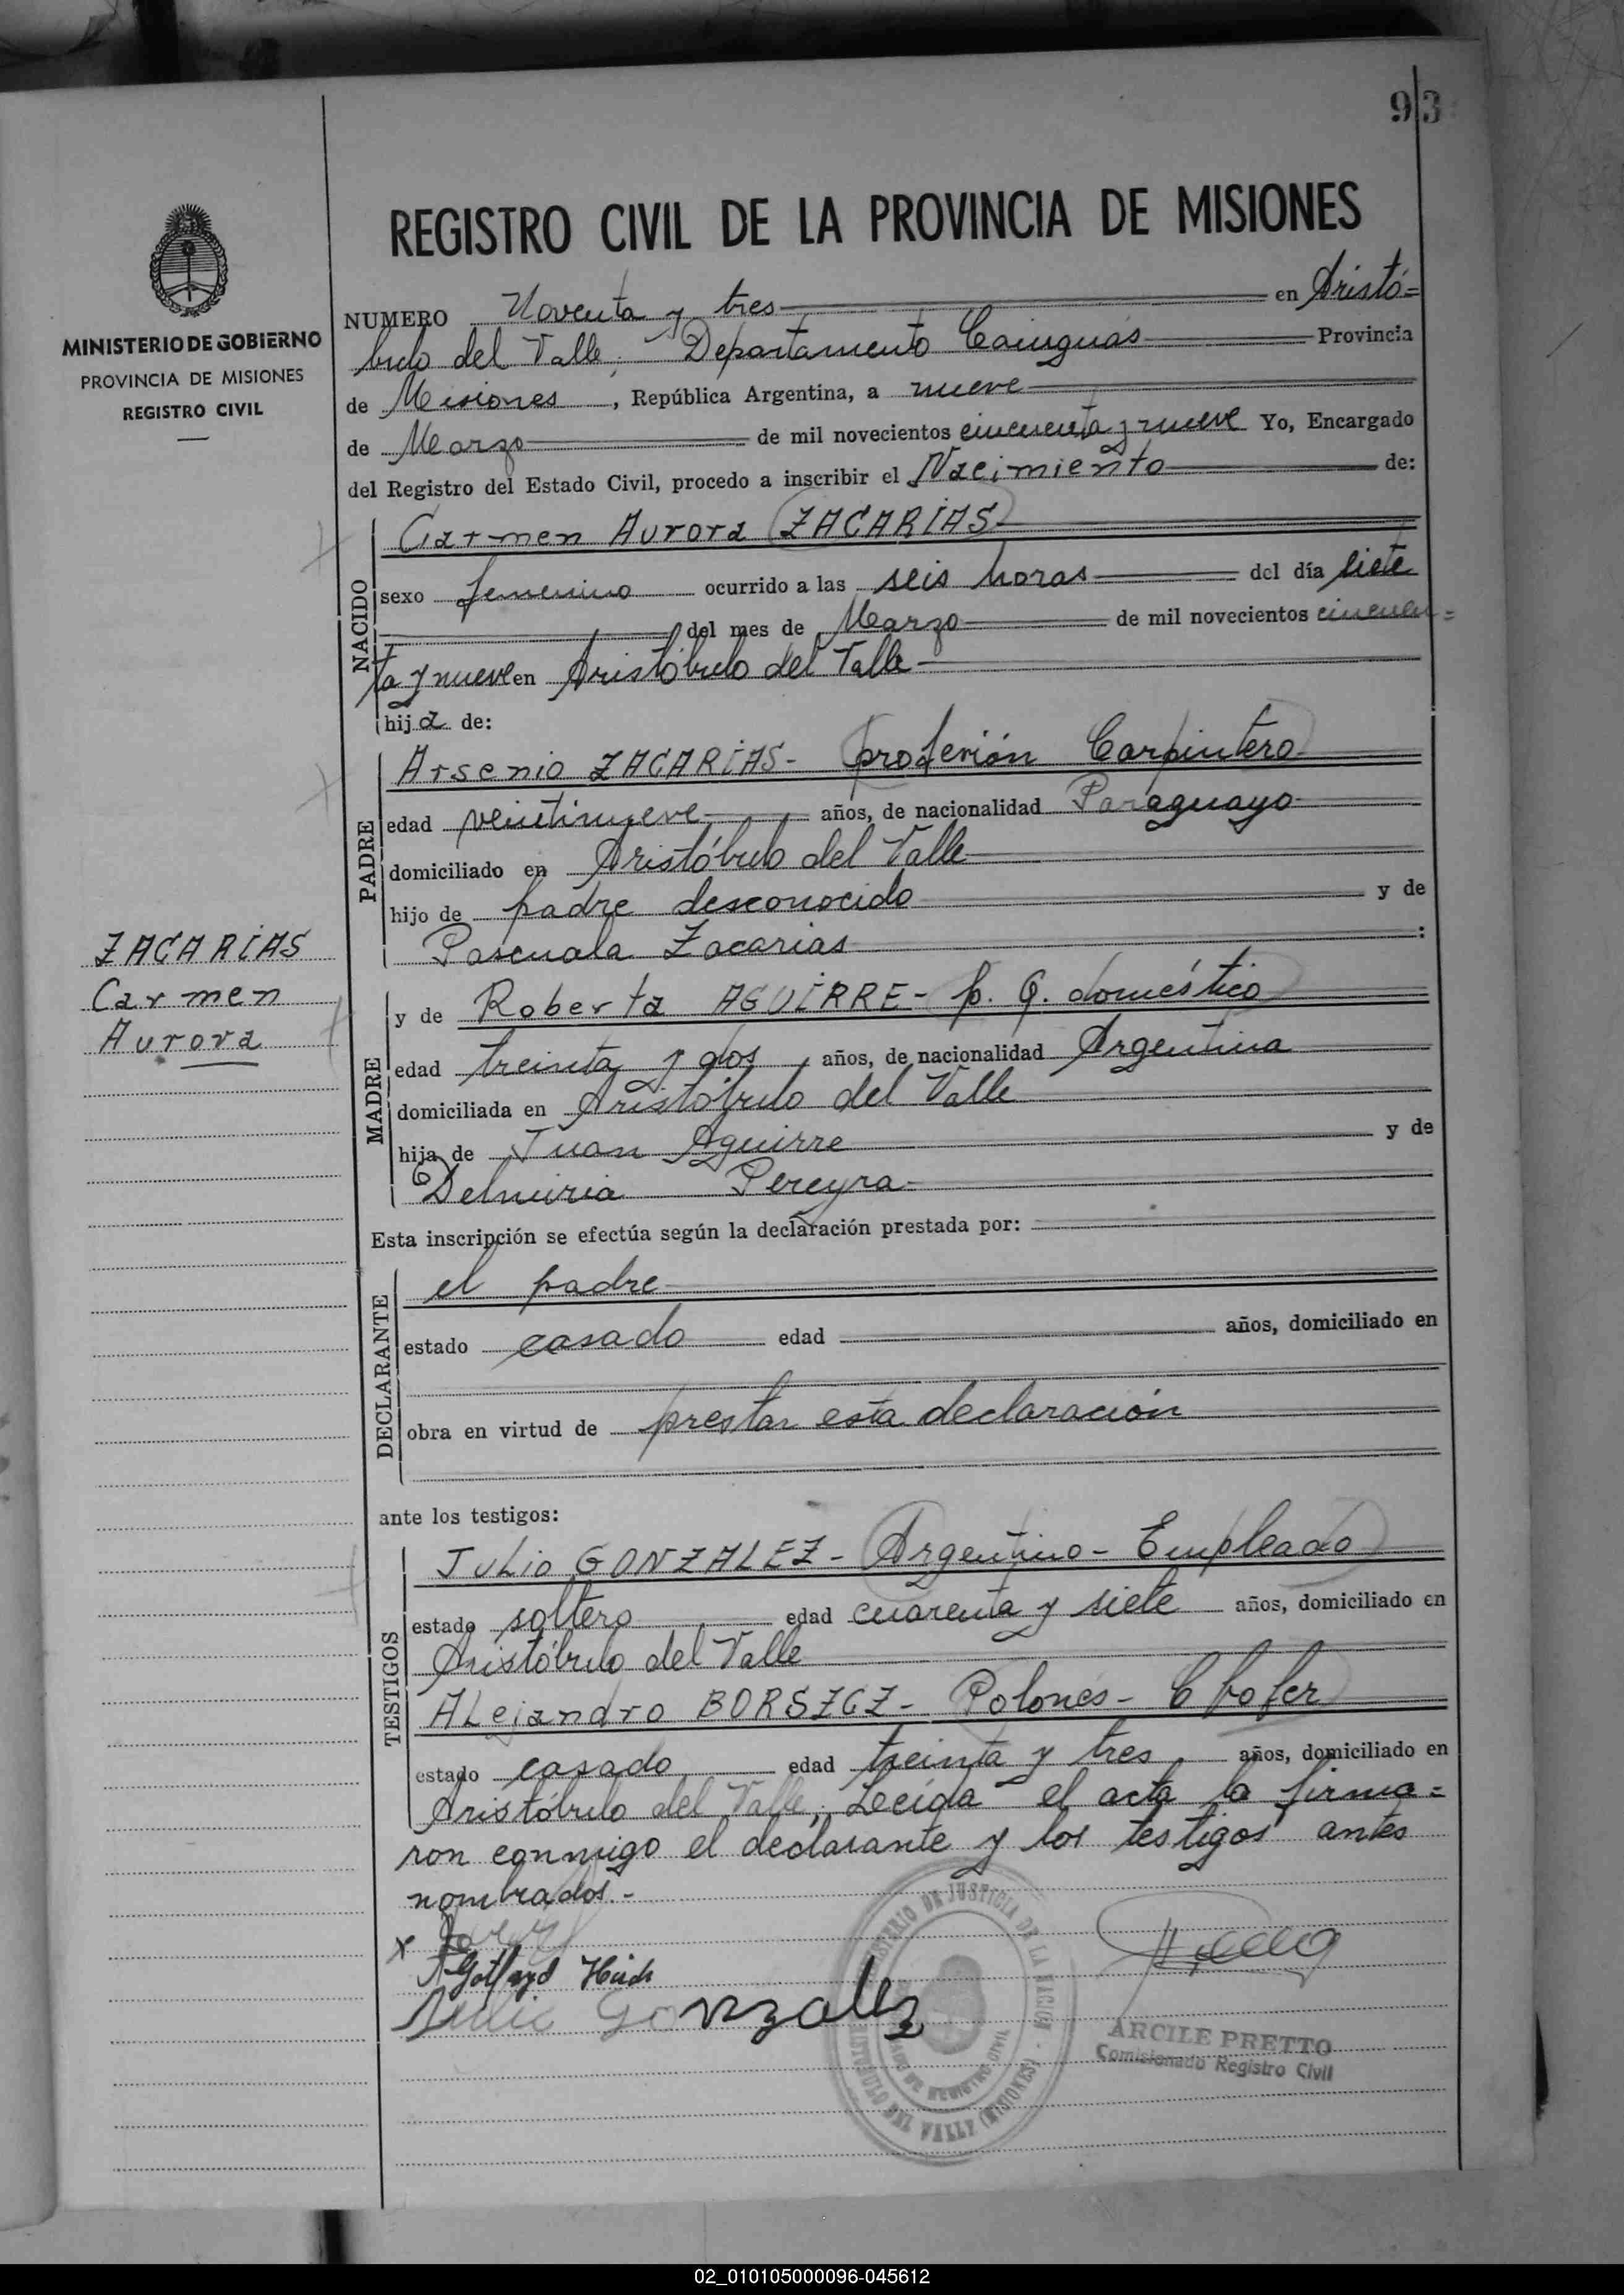 93
REGISTRO CIVIL DE LA PROVINCIA DE MISIONES
MINISTERIO DE GOBIERNO
PROVINCIA DE MISIONES
REGISTRO CIVIL
NUMERO Noventa y tres en Aristó=
bulo del Valle, Departamento Cainguás Provincia
de Misiones, República Argentina, a nueve
de Marzo de mil novecientos cincuenta y nueve Yo, Encargado
del Registro del Estado Civil, procedo a inscribir el Nacimiento de:
NACIDO
Carmen Aurora ZACARÍAS
sexo femenino ocurrido a las seis horas del día siete
del mes de Marzo de mil novecientos cincuen=
ta y nueve en Aristóbulo del Valle
hija de:
PADRE
Arsenio ZACARÍAS- profesión Carpintero
edad veintinueve años, de nacionalidad Paraguayo
domiciliado en Aristóbulo del Valle
hijo de padre desconocido y de
Pascuala Zacarias :
ZACARÍAS
Carmen
Aurora
MADRE
y de Roberta AGUÍRRE- p. Q. doméstico
edad treinta y dos años, de nacionalidad Argentina
domiciliada en Aristóbulo del Valle
hija de Juan Aguirre y de
Delmiria Pereyra
Esta inscripción se efectúa según la declaración prestada por:
DECLARANTE
el padre
estado casado edad años, domiciliado en
obra en virtud de prestar esta declaración
ante los testigos:
TESTIGOS
Julio GONZALEZ- Argentino- Empleado
estado soltero edad cuarenta y siete años, domiciliado en
Aristóbulo del Valle
ALejandro BORSZCZ- Polonés- Chofer
estado casado edad treinta y tres años, domiciliado en
Aristóbulo del Valle, Leída el acta la firma=
ron conmigo el declarante y los testigos antes
nombrados.-
x
Julio Gonzalez
MINISTERIO DE JUSTICIA DE LA NACION
ARISTOBULO DEL VALLE (MISIONES)
ARCILE PRETTO
Comisionado Registro Civil
02_010105000096-045612